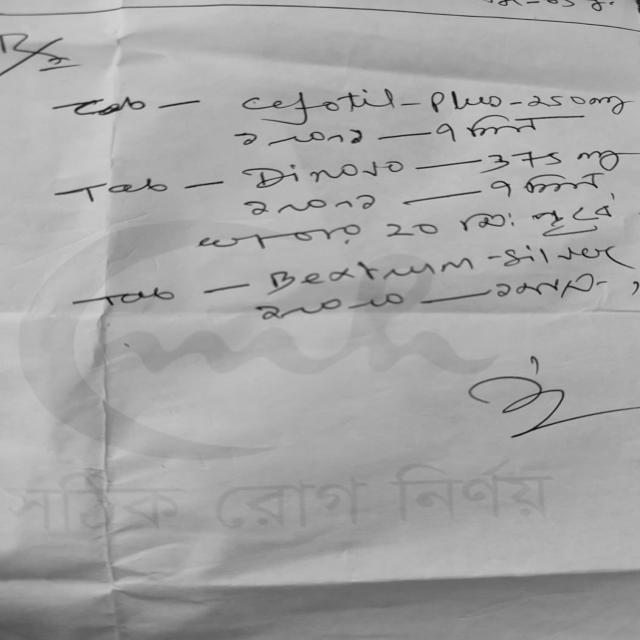 R/x
Tab — Cefotil-Plus-250mg
১+০+১ — ৭ দিন
Tab — Dinovo — 375 mg
১+০+১ — ৭ দিন
20 মিঃ পূর্বে
Tab — Bextrum-Silver
১+০+০ —
সঠিক রোগ নির্ণয়